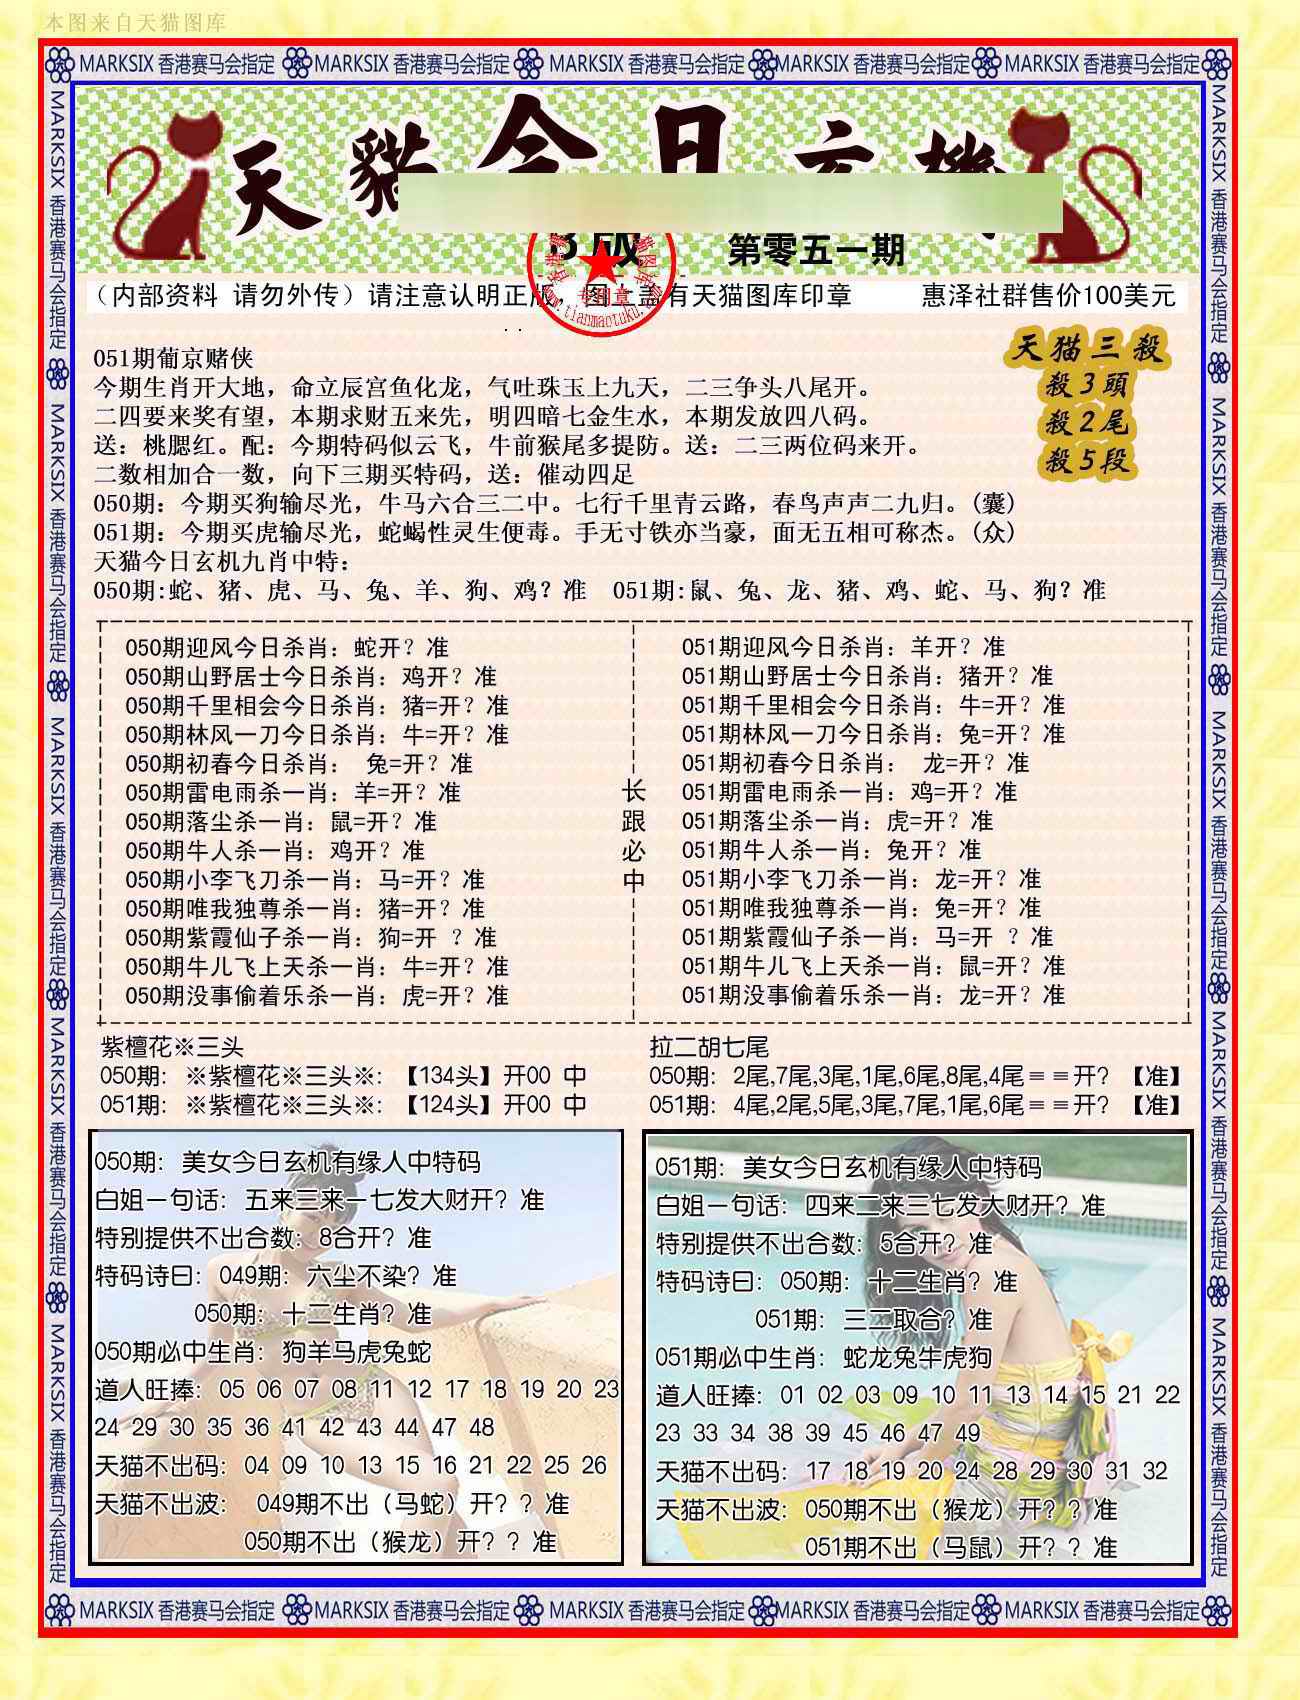 本图来自天猫图库
MARKSIX 香港赛马会指定 MARKSIX 香港赛马会指定 MARKSIX 香港赛马会指定 MARKSIX 香港赛马会指定 MARKSIX 香港赛马会指定
MARKSIX 香港赛马会指定 MARKSIX 香港赛马会指定 MARKSIX 香港赛马会指定 MARKSIX 香港赛马会指定 MARKSIX 香港赛马会指定
MARKSIX 香港赛马会指定 MARKSIX 香港赛马会指定 MARKSIX 香港赛马会指定 MARKSIX 香港赛马会指定 MARKSIX 香港赛马会指定
天貓今日玄機
B版 第零五一期
专用章
www.tianmaotuku.com
（内部资料 请勿外传）请注意认明正版，图上盖有天猫图库印章 惠泽社群售价100美元
天猫三殺
殺3頭
殺2尾
殺5段
051期葡京赌侠
今期生肖开大地，命立辰宫鱼化龙，气吐珠玉上九天，二三争头八尾开。
二四要来奖有望，本期求财五来先，明四暗七金生水，本期发放四八码。
送：桃腮红。配：今期特码似云飞，牛前猴尾多提防。送：二三两位码来开。
二数相加合一数，向下三期买特码，送：催动四足
050期：今期买狗输尽光，牛马六合三二中。七行千里青云路，春鸟声声二九归。(囊)
051期：今期买虎输尽光，蛇蝎性灵生便毒。手无寸铁亦当豪，面无五相可称杰。(众)
天猫今日玄机九肖中特：
050期:蛇、猪、虎、马、兔、羊、狗、鸡？准 051期:鼠、兔、龙、猪、鸡、蛇、马、狗？准
050期迎风今日杀肖：蛇开？准
050期山野居士今日杀肖：鸡开？准
050期千里相会今日杀肖：猪=开？准
050期林风一刀今日杀肖：牛=开？准
050期初春今日杀肖： 兔=开？准
050期雷电雨杀一肖：羊=开？准
050期落尘杀一肖：鼠=开？准
050期牛人杀一肖：鸡开？准
050期小李飞刀杀一肖：马=开？准
050期唯我独尊杀一肖：猪=开？准
050期紫霞仙子杀一肖：狗=开 ？准
050期牛儿飞上天杀一肖：牛=开？准
050期没事偷着乐杀一肖：虎=开？准
长跟必中
051期迎风今日杀肖：羊开？准
051期山野居士今日杀肖：猪开？准
051期千里相会今日杀肖：牛=开？准
051期林风一刀今日杀肖：兔=开？准
051期初春今日杀肖： 龙=开？准
051期雷电雨杀一肖：鸡=开？准
051期落尘杀一肖：虎=开？准
051期牛人杀一肖：兔开？准
051期小李飞刀杀一肖：龙=开？准
051期唯我独尊杀一肖：兔=开？准
051期紫霞仙子杀一肖：马=开 ？准
051期牛儿飞上天杀一肖：鼠=开？准
051期没事偷着乐杀一肖：龙=开？准
紫檀花※三头
050期：※紫檀花※三头※：【134头】开00 中
051期：※紫檀花※三头※：【124头】开00 中
拉二胡七尾
050期：2尾,7尾,3尾,1尾,6尾,8尾,4尾≡≡开？【准】
051期：4尾,2尾,5尾,3尾,7尾,1尾,6尾≡≡开？【准】
050期：美女今日玄机有缘人中特码
白姐一句话：五来三来一七发大财开？准
特别提供不出合数：8合开？准
特码诗曰：049期：六尘不染？准
050期：十二生肖？准
050期必中生肖：狗羊马虎兔蛇
道人旺捧：05 06 07 08 11 12 17 18 19 20 23
24 29 30 35 36 41 42 43 44 47 48
天猫不出码：04 09 10 13 15 16 21 22 25 26
天猫不出波： 049期不出（马蛇）开？？准
050期不出（猴龙）开？？准
051期：美女今日玄机有缘人中特码
白姐一句话：四来二来三七发大财开？准
特别提供不出合数：5合开？准
特码诗曰：050期：十二生肖？准
051期：三二取合？准
051期必中生肖：蛇龙兔牛虎狗
道人旺捧：01 02 03 09 10 11 13 14 15 21 22
23 33 34 38 39 45 46 47 49
天猫不出码：17 18 19 20 24 28 29 30 31 32
天猫不出波：050期不出（猴龙）开？？准
051期不出（马鼠）开？？准
MARKSIX 香港赛马会指定 MARKSIX 香港赛马会指定 MARKSIX 香港赛马会指定 MARKSIX 香港赛马会指定 MARKSIX 香港赛马会指定